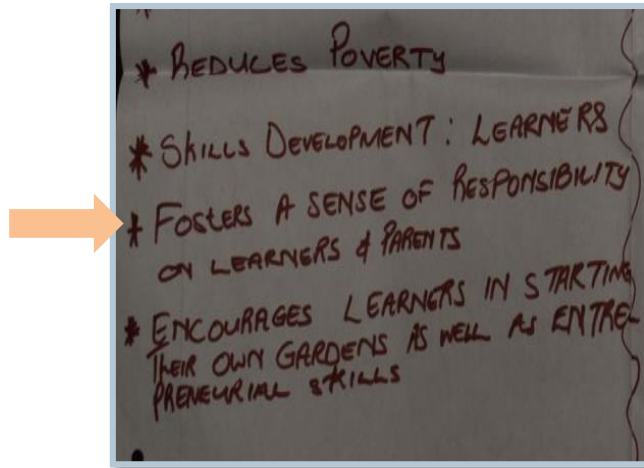 * REDUCES POVERTY
* SKILLS DEVELOPMENT : LEARNERS
* FOSTERS A SENSE OF RESPONSIBILITY
ON LEARNERS & PARENTS
* ENCOURAGES LEARNERS IN STARTING
THEIR OWN GARDENS AS WELL AS ENTRE-
PRENEURIAL SKILLS